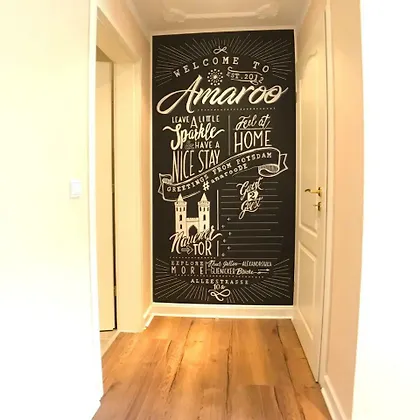 WELCOME TO
EST. 2012
Amaroo
LEAVE A LITTLE
Sparkle
HAVE A
NICE STAY
Feel at
HOME
GREETINGS FROM POTSDAM
#amarooDE
Nauener
TOR
EXPLORE
MORE!
ALEXANDROWKA
GLIENICKER Brücke
ALLEESTRASSE
10